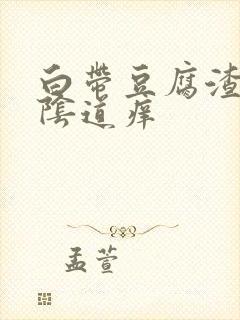 白带豆腐渣
陰道痒
孟萱